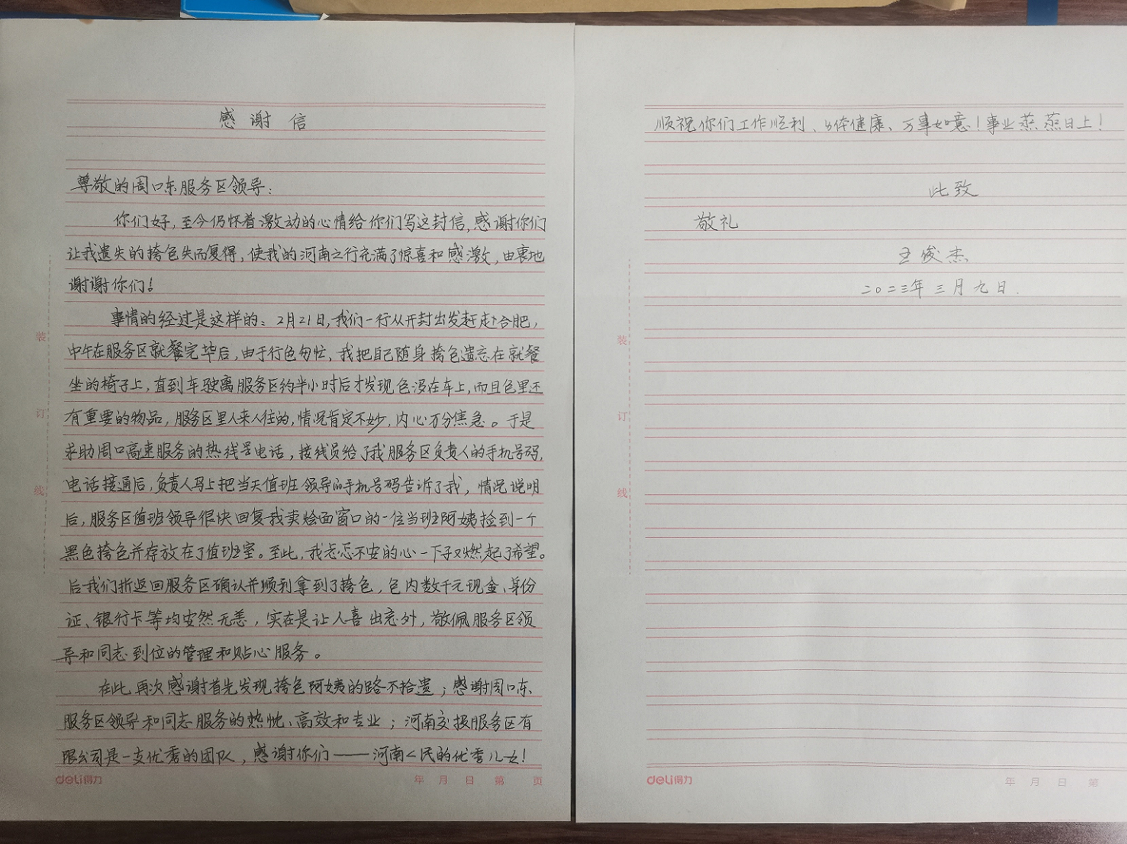 感谢信
尊敬的周口东服务区领导：
你们好，至今仍怀着激动的心情给你们写这封信，感谢你们
让我遗失的挎包失而复得，使我的河南之行充满了惊喜和感激，由衷地
谢谢你们！
事情的经过是这样的：2月21日，我们一行从开封出发赶赴合肥，
中午在服务区就餐完毕后，由于行色匆忙，我把自己随身挎包遗忘在就餐
坐的椅子上，直到车驶离服务区约半小时后才发现包没在车上，而且包里还
有重要的物品，服务区里人来人往的，情况肯定不妙，内心万分焦急。于是
求助周口高速服务的热线号电话，接线员给了我服务区负责人的手机号码，
电话接通后，负责人马上把当天值班领导的手机号码告诉了我，情况说明
后，服务区值班领导很快回复我卖烩面窗口的一位当班阿姨捡到一个
黑色挎包并存放在了值班室。至此，我忐忑不安的心一下子又燃起了希望。
后我们折返回服务区确认并顺利拿到了挎包，包内数千元现金、身份
证、银行卡等均安然无恙，实在是让人喜出意外，敬佩服务区领
导和同志到位的管理和贴心服务。
在此再次感谢首先发现挎包阿姨的路不拾遗；感谢周口东
服务区领导和同志服务的热忱、高效和专业；河南交投服务区有
限公司是一支优秀的团队，感谢你们——河南人民的优秀儿女！
装
订
线
deli得力
年 月 日 第 页
顺祝你们工作顺利、身体健康、万事如意！事业蒸蒸日上！
此致
敬礼
王俊杰
二〇二三年三月九日.
装
订
线
deli得力
年 月 日 第